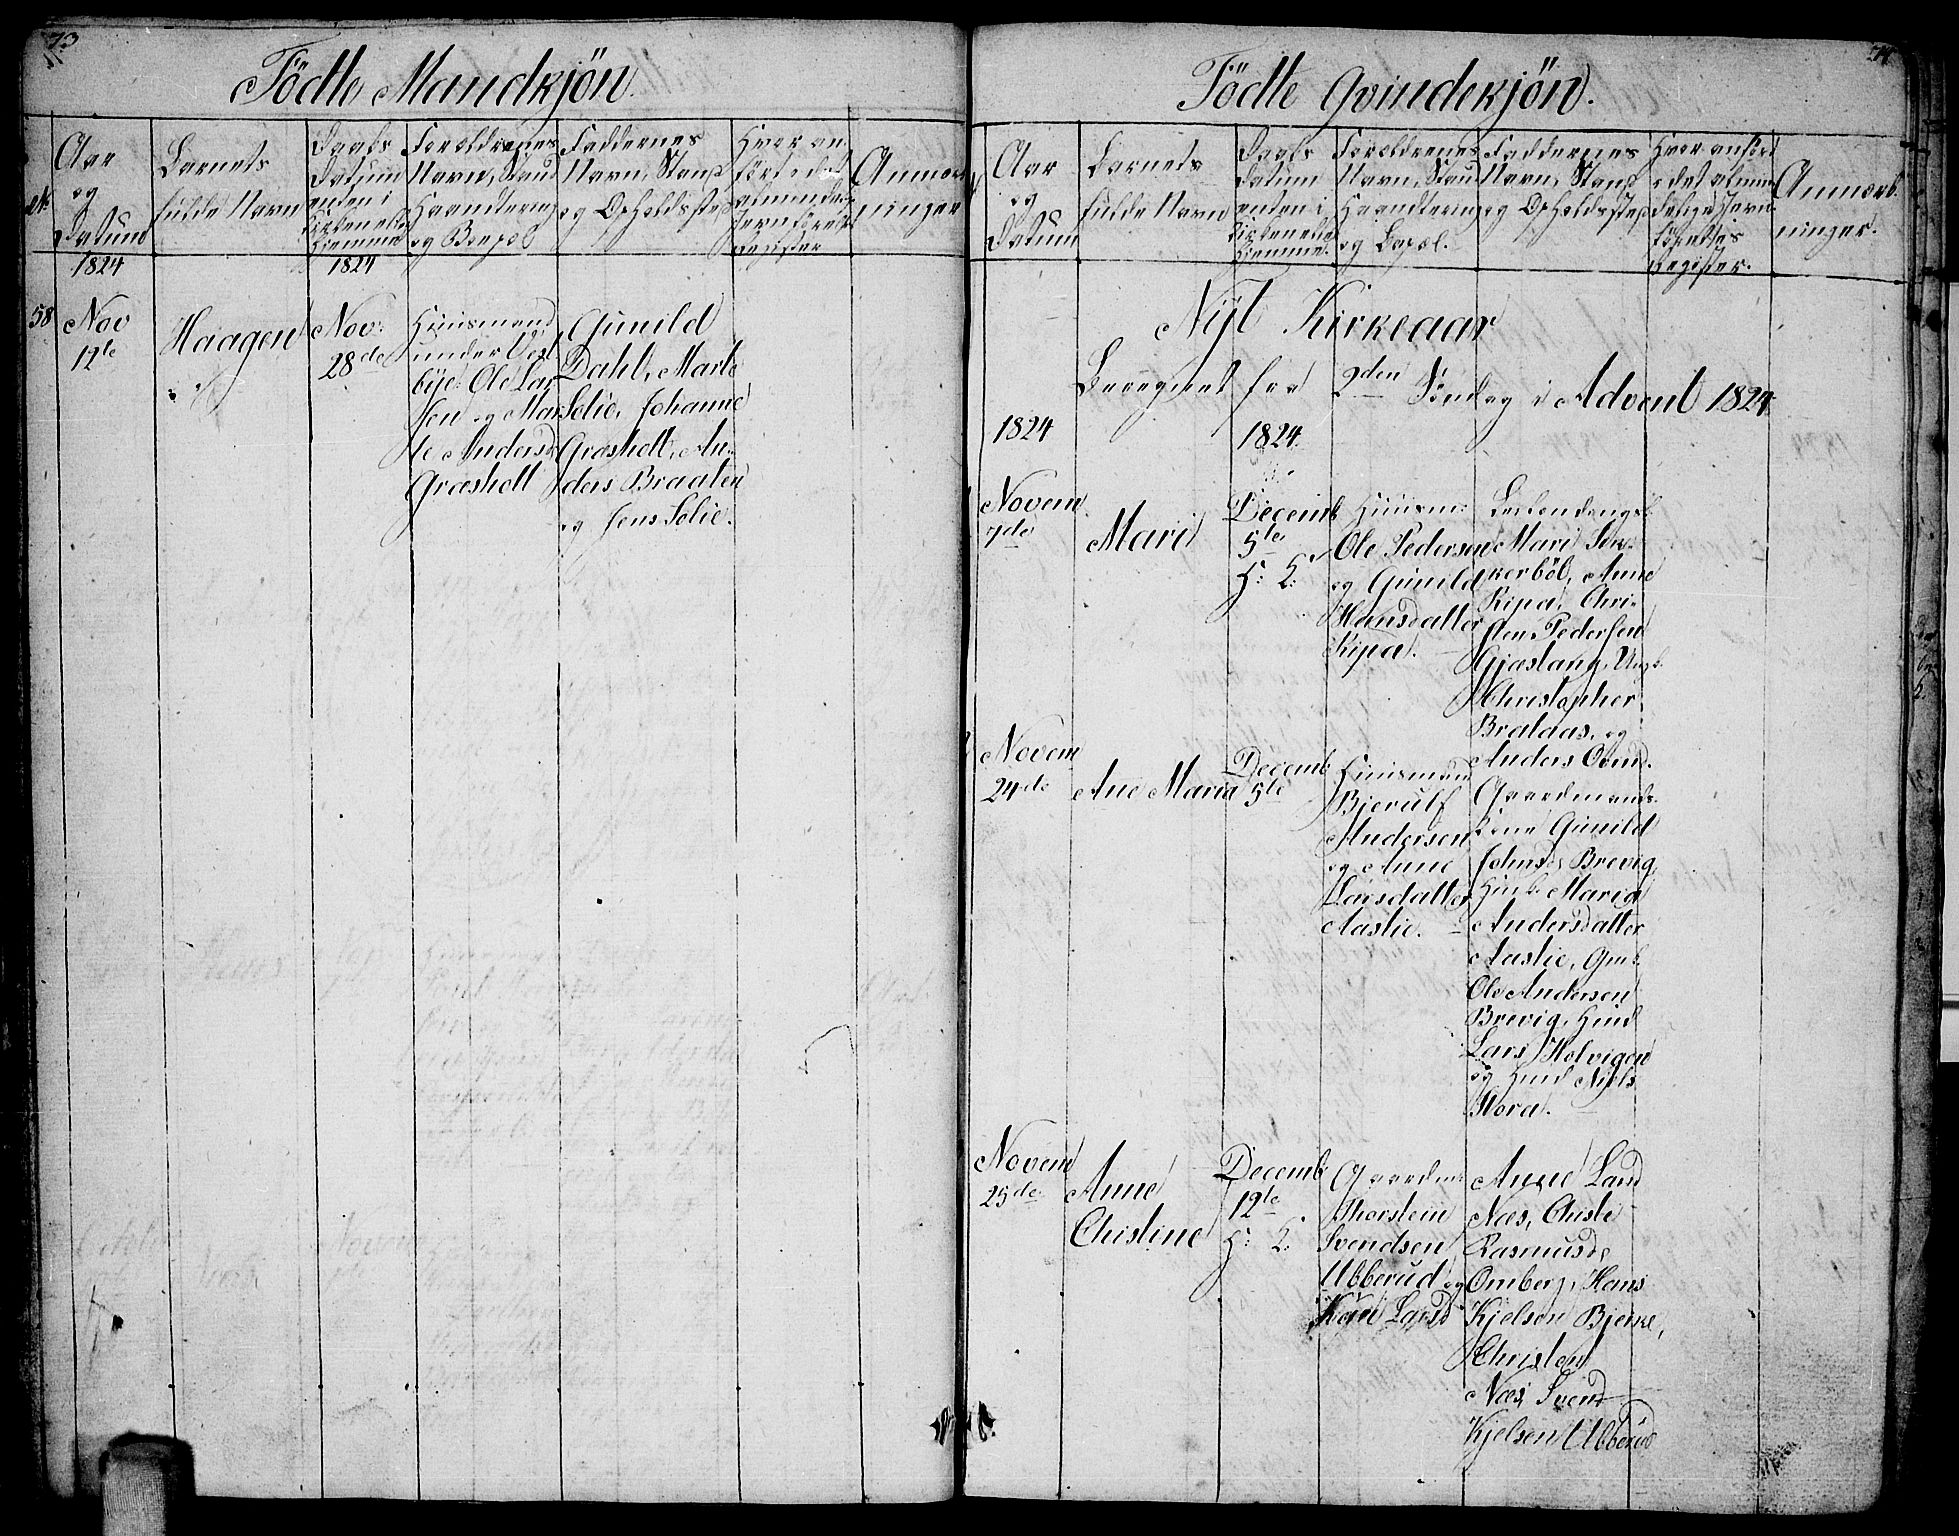 73
Födte Mandkjön.
No
Aar
og
Datum
Barnets
fulde Navn
Daabs
Datum
enten i
Kirken eller
Hjemme
Forældrenes
Navn, Stand
Haandtering
og Bopæl
Faddernes
Navn, Stand
og Opholdssted
Hvor an-
ført i det
almindelige
Jevnförels
Register
Anmærk
ninger
1824
1824
58
Nov
12te
Haagen
Nov:
28de
Huusmand
under Vest
bye Ole Lar
sen og Mar
te Andersd
Græsholt
Gunild
Dahl, Marte
Solie, Johanne
Græsholt, An-
ders Braaten
og Jens Solie.
74
Födte Qvindekjön.
Aar
og
Datum
Barnets
fulde Navn
Daabs
Datum
enten i
Kirken eller
Hjemme.
Forældrenes
Navn, Stand
Haandtering
og Bopæl.
Faddernes
Navn, Stand
og Opholdssted
Hvor anført
i det almin
delige Jevn-
förelses
Register.
Anmærk-
ninger.
Nyt Kirkeaar
Beregnet fra 2den Söndag i Advent 1824
1824
1824.
Novem
7de
Mari
Decemb
5te
H: K:
Huusm:
Ole Pedersen
og Gunild
Hansdatter
Ripa.
Mari
kerböl, Anne
Ripa, Chri-
sten Pedersen
Gjæstang, Ungk.
Christopher
Brataas, og
Anders
Novem
24de
Ane Maria
Decemb
5te
Huusmand
Bjerulf
Andersen
og Anne
Larsdatter
Aaslie.
Gaardmands-
kone Gunild
Johnsd: Brevig,
Maria
Andersdatter
Aaslie,
Ole Andersen
Brevig,
Lars Holvigen
og Niels
Hora.
Novem
25de
Anne
Christine
Decemb
12te
H: K:
Gaardm:
Thorstein
Svendsen
Ubberud og
Kari Larsd
Anne Land
Næs, Chiste
Rasmusd.
Omberg, Hans
Kjelsen Bjerke,
Christen
Næs, Svend
Kjelsen Ubberud